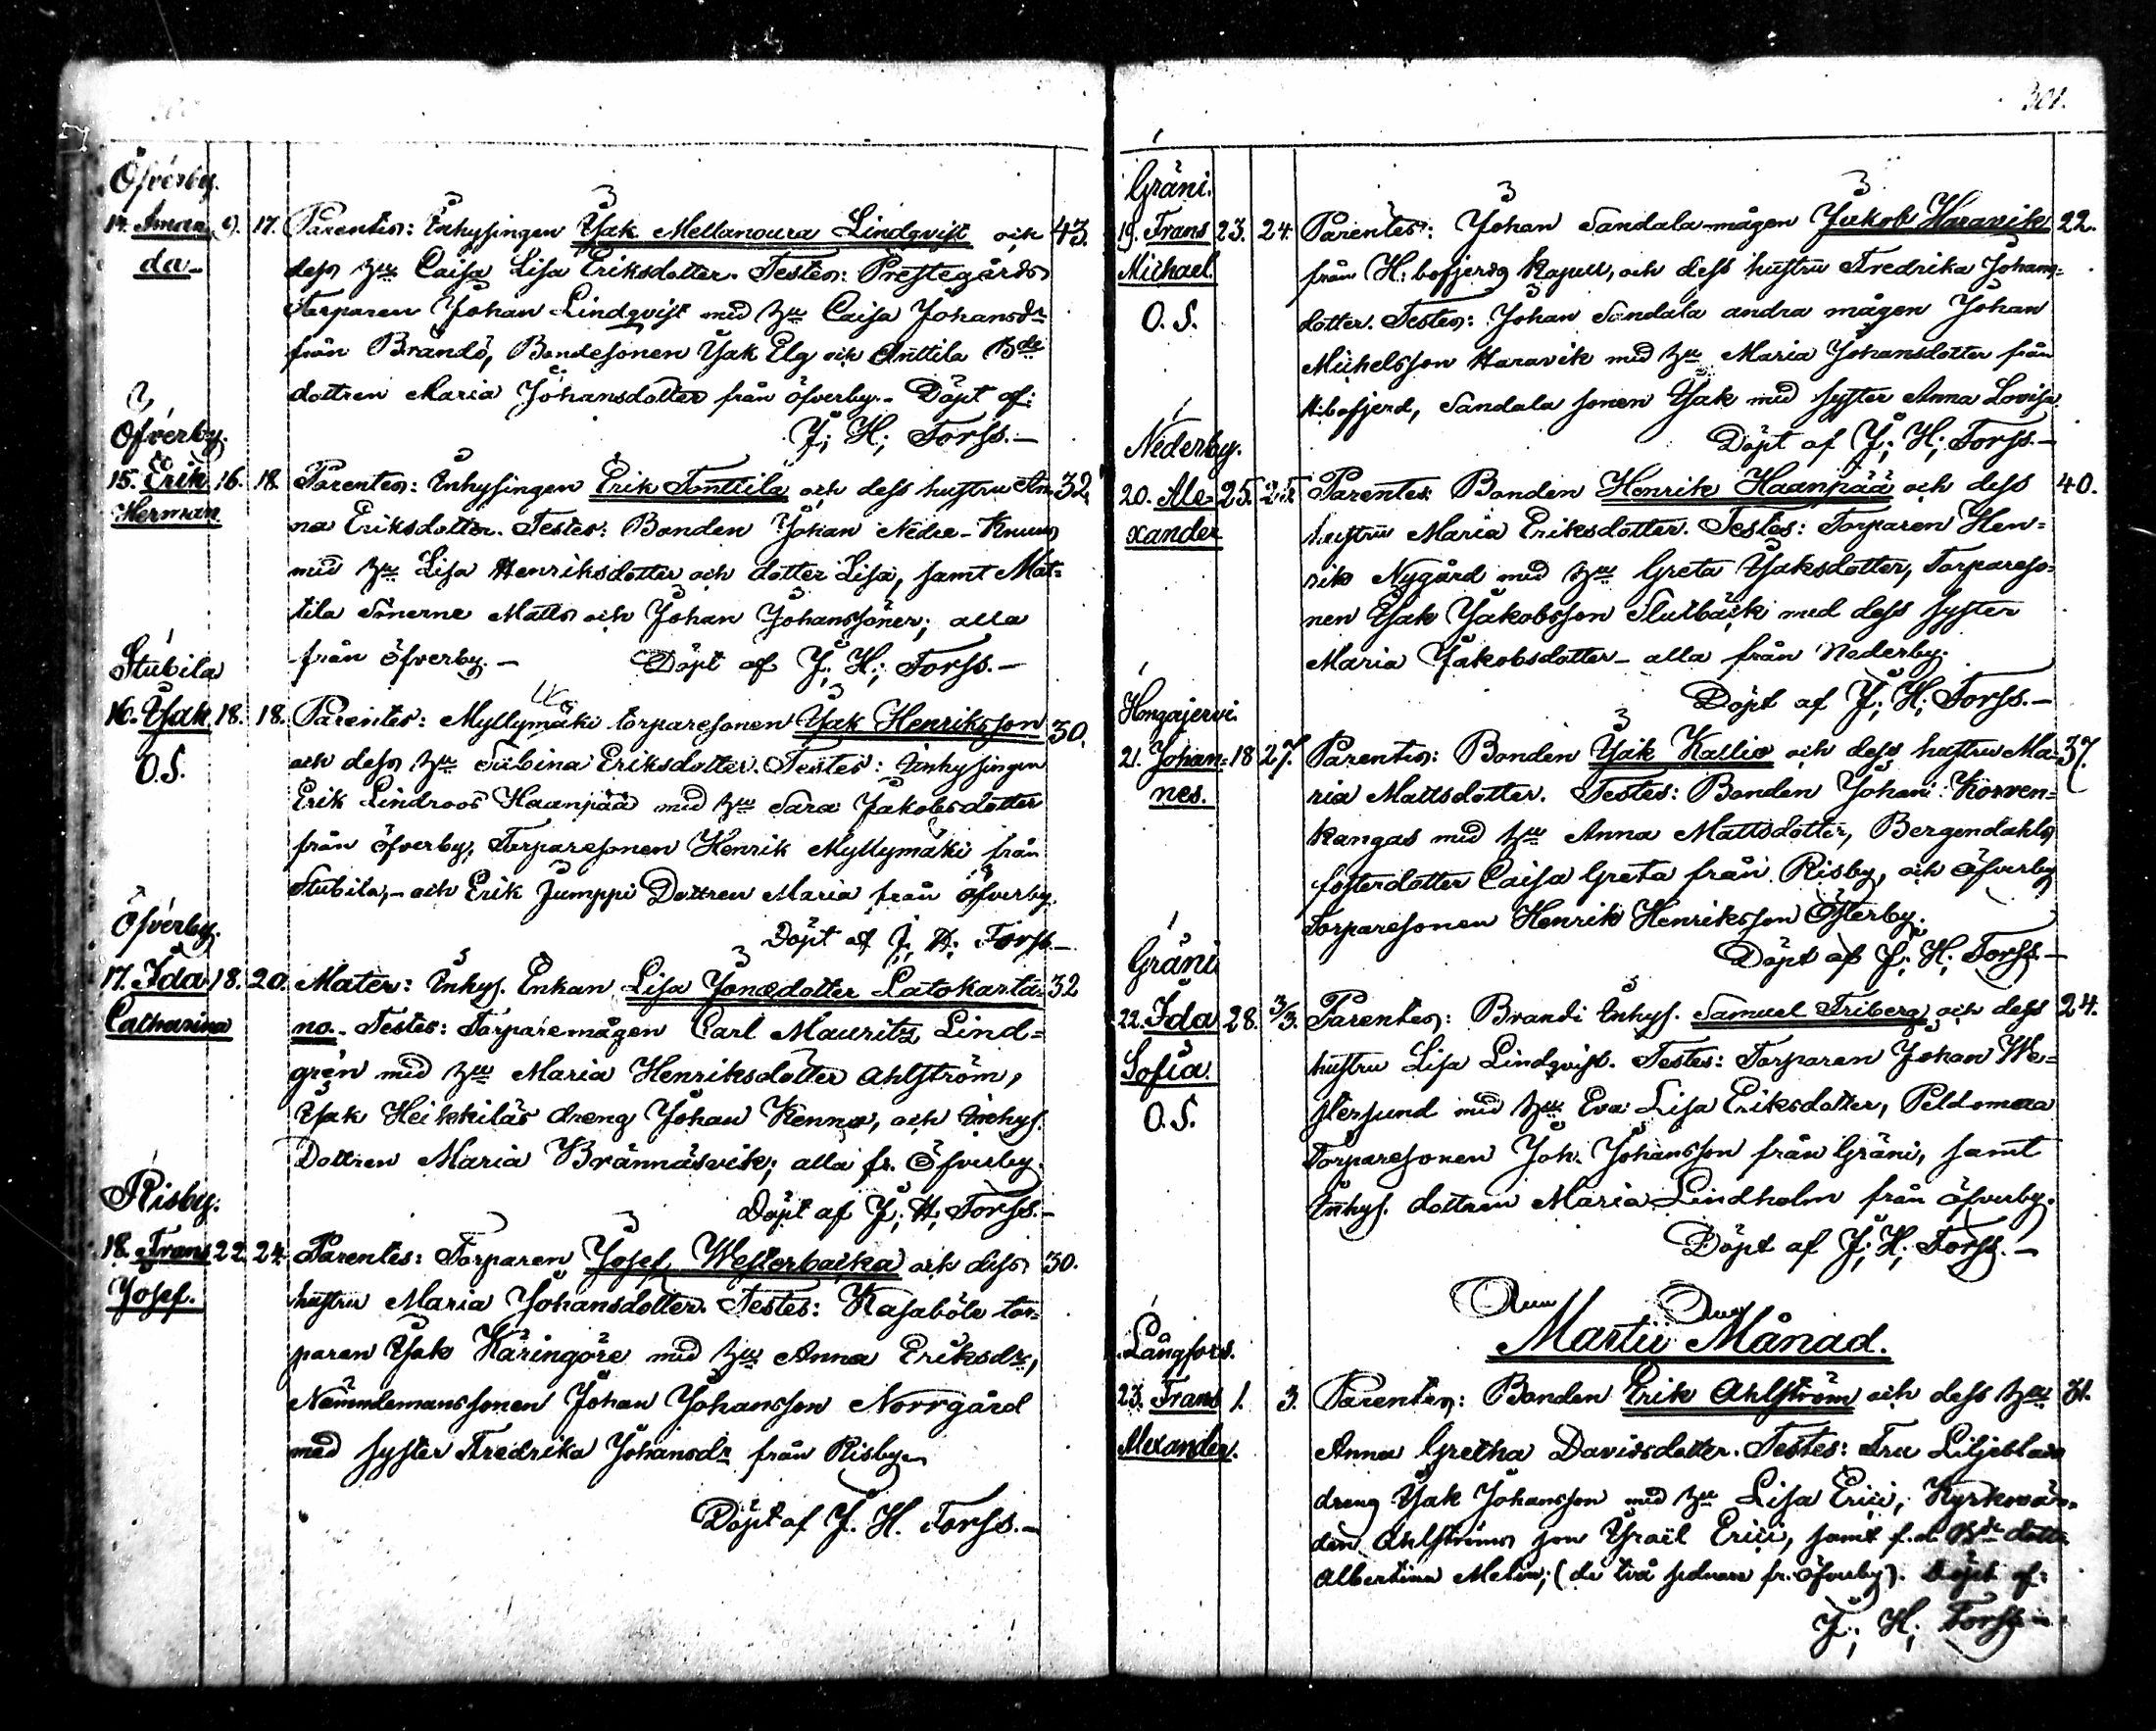 Öfverby.
14. Aman= 9. 17. Parentes: Inhysingen Isak Mellanoura Lindqvist och 43.
da- dess hu Caisa Lisa Eriksdotter. Testes: Prestegårds
Torparen Johan Lindqvist med hu Caisa Johansdr
från Brändö, Bondesonen Isak Elg och Anttila Bde
dottren Maria Johansdotter från öfverby.- Döpt af:
J; H; Forss.-
Öfverby.
15. Erik 16. 18. Parentes: Inhysingen Erik Tonttila och dess hustru An= 32.
Herman na Eriksdotter. Testes: Bonden Johan Nedre-Knuus
med hu Lisa Henriksdotter och dotter Lisa, samt Mat=
tila Sönerne Matts och Johan Johanssöner; alla
från öfverby.- Döpt af J; H; Forss.-
Stubila
16. Isak 18. 18. Parentes: Myllymäki torparesonen Isak Henriksson 30.
O.S. och dess hu Sabina Eriksdotter. Testes: Inhysingen
Erik Lindroos Haanpää med hu Sara Jakobsdotter
från öfverby, Torparesonen Henrik Myllymäki från
Stubila,- och Erik Jumppi Dottren Maria från öfverby.
Döpt af J; H; Forss.-
Öfverby.
17. Ida 18. 20. Mater: Inhys. Enkan Lisa Jonædotter Latokarta= 32
Catharina no.- Testes: Torparemågen Carl Mauritz Lind=
gren med hu Maria Henriksdotter Ahlström,
Isak Heikkiläs dreng Johan Kenno, och Inhys.
Dottren Maria Brännäsvik; alla fr. Öfverby.
Döpt af J; H; Forss.-
Risby.
18. Frans 22. 24. Parentes: Torparen Josef Westerbacka och dess 30.
Josef. hustru Maria Johansdotter. Testes: Kasaböle tor=
paren Isak Käringöre med hu Anna Eriksdr,
Nämndemanssonen Johan Johansson Norrgård
med syster Fredrika Johansdr från Risby.
Döpt af J. H. Forss.-
301.
Gräni.
19. Frans 23. 24. Parentes: Johan Sandala-mågen Jakob Haravik 22.
Michael. från H:bofjerds Kapell, och dess hustru Fredrika Johans=
O.S. dotter. Testes: Johan Sandala andra mågen Johan
Michelsson Haravik med hu Maria Johansdotter från
H:bofjerd, Sandala sonen Isak med syster Anna Lovisa.
Döpt af J; H; Forss.-
Nederby.
20. Ale= 25. 25. Parentes: Bonden Henrik Haanpää och dess 40.
xander hustru Maria Eriksdotter. Testes: Torparen Hen=
rik Nygård med hu Greta Isaksdotter, Torpareso=
nen Isak Jakobsson Slutbäck med dess syster
Maria Jakobsdotter- alla från Nederby.
Döpt af J; H; Forss.-
Hongajervi.
21. Johan= 18 27. Parentes: Bonden Isak Kallio och dess hustru Ma= 37.
nes. ria Mattsdotter. Testes: Bonden Johan Korven=
kangas med hu Anna Mattsdotter, Bergendahls
fosterdotter Caisa Greta från Risby, och Öfverby
Torparesonen Henrik Henriksson Österby.
Döpt af J; H; Forss.-
Gräni
22. Ida 28. 3/3. Parentes: Brandi Inhys. Samuel Friberg och dess 24.
Sofia. hustru Lisa Lindqvist. Testes: Torparen Johan We=
O.S. stersund med hu Eva Lisa Eriksdotter, Peldomaa
Torparesonen Joh. Johansson från Gräni, samt
Inhys. dottren Maria Lindholm från öfverby.
Döpt af J; H; Forss.-
Martii Månad.
Långfors.
23. Frans 1. 3. Parentes: Bonden Erik Ahlström och dess hu 31.
Alexander. Anna Gretha Davidsdotter. Testes: Fru Liljeblads
dreng Isak Johansson med hu Lisa Erici, Kyrkovär=
den Ahlströms son Israël Erici, samt f.d. Bde dotter
Albertina Melin; (de två sednare fr. öfverby). Döpt af:
J; H; Forss.-